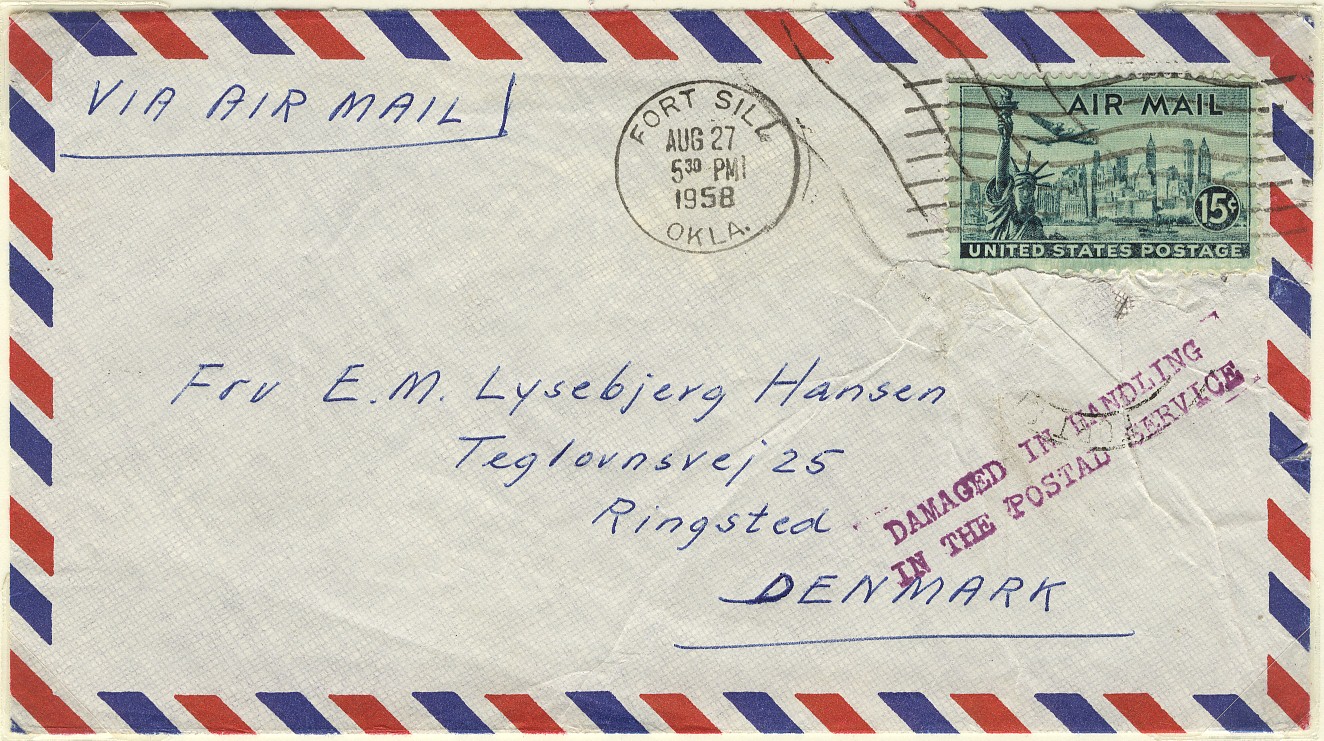 VIA AIR MAIL
FORT SILL
AUG 27
5 30 PM
1958
OKLA.
AIR MAIL
15¢
UNITED STATES POSTAGE
Fru E.M. Lysebjerg Hansen
Teglovnsvej 25
Ringsted
DENMARK
DAMAGED IN HANDLING
IN THE POSTAL SERVICE